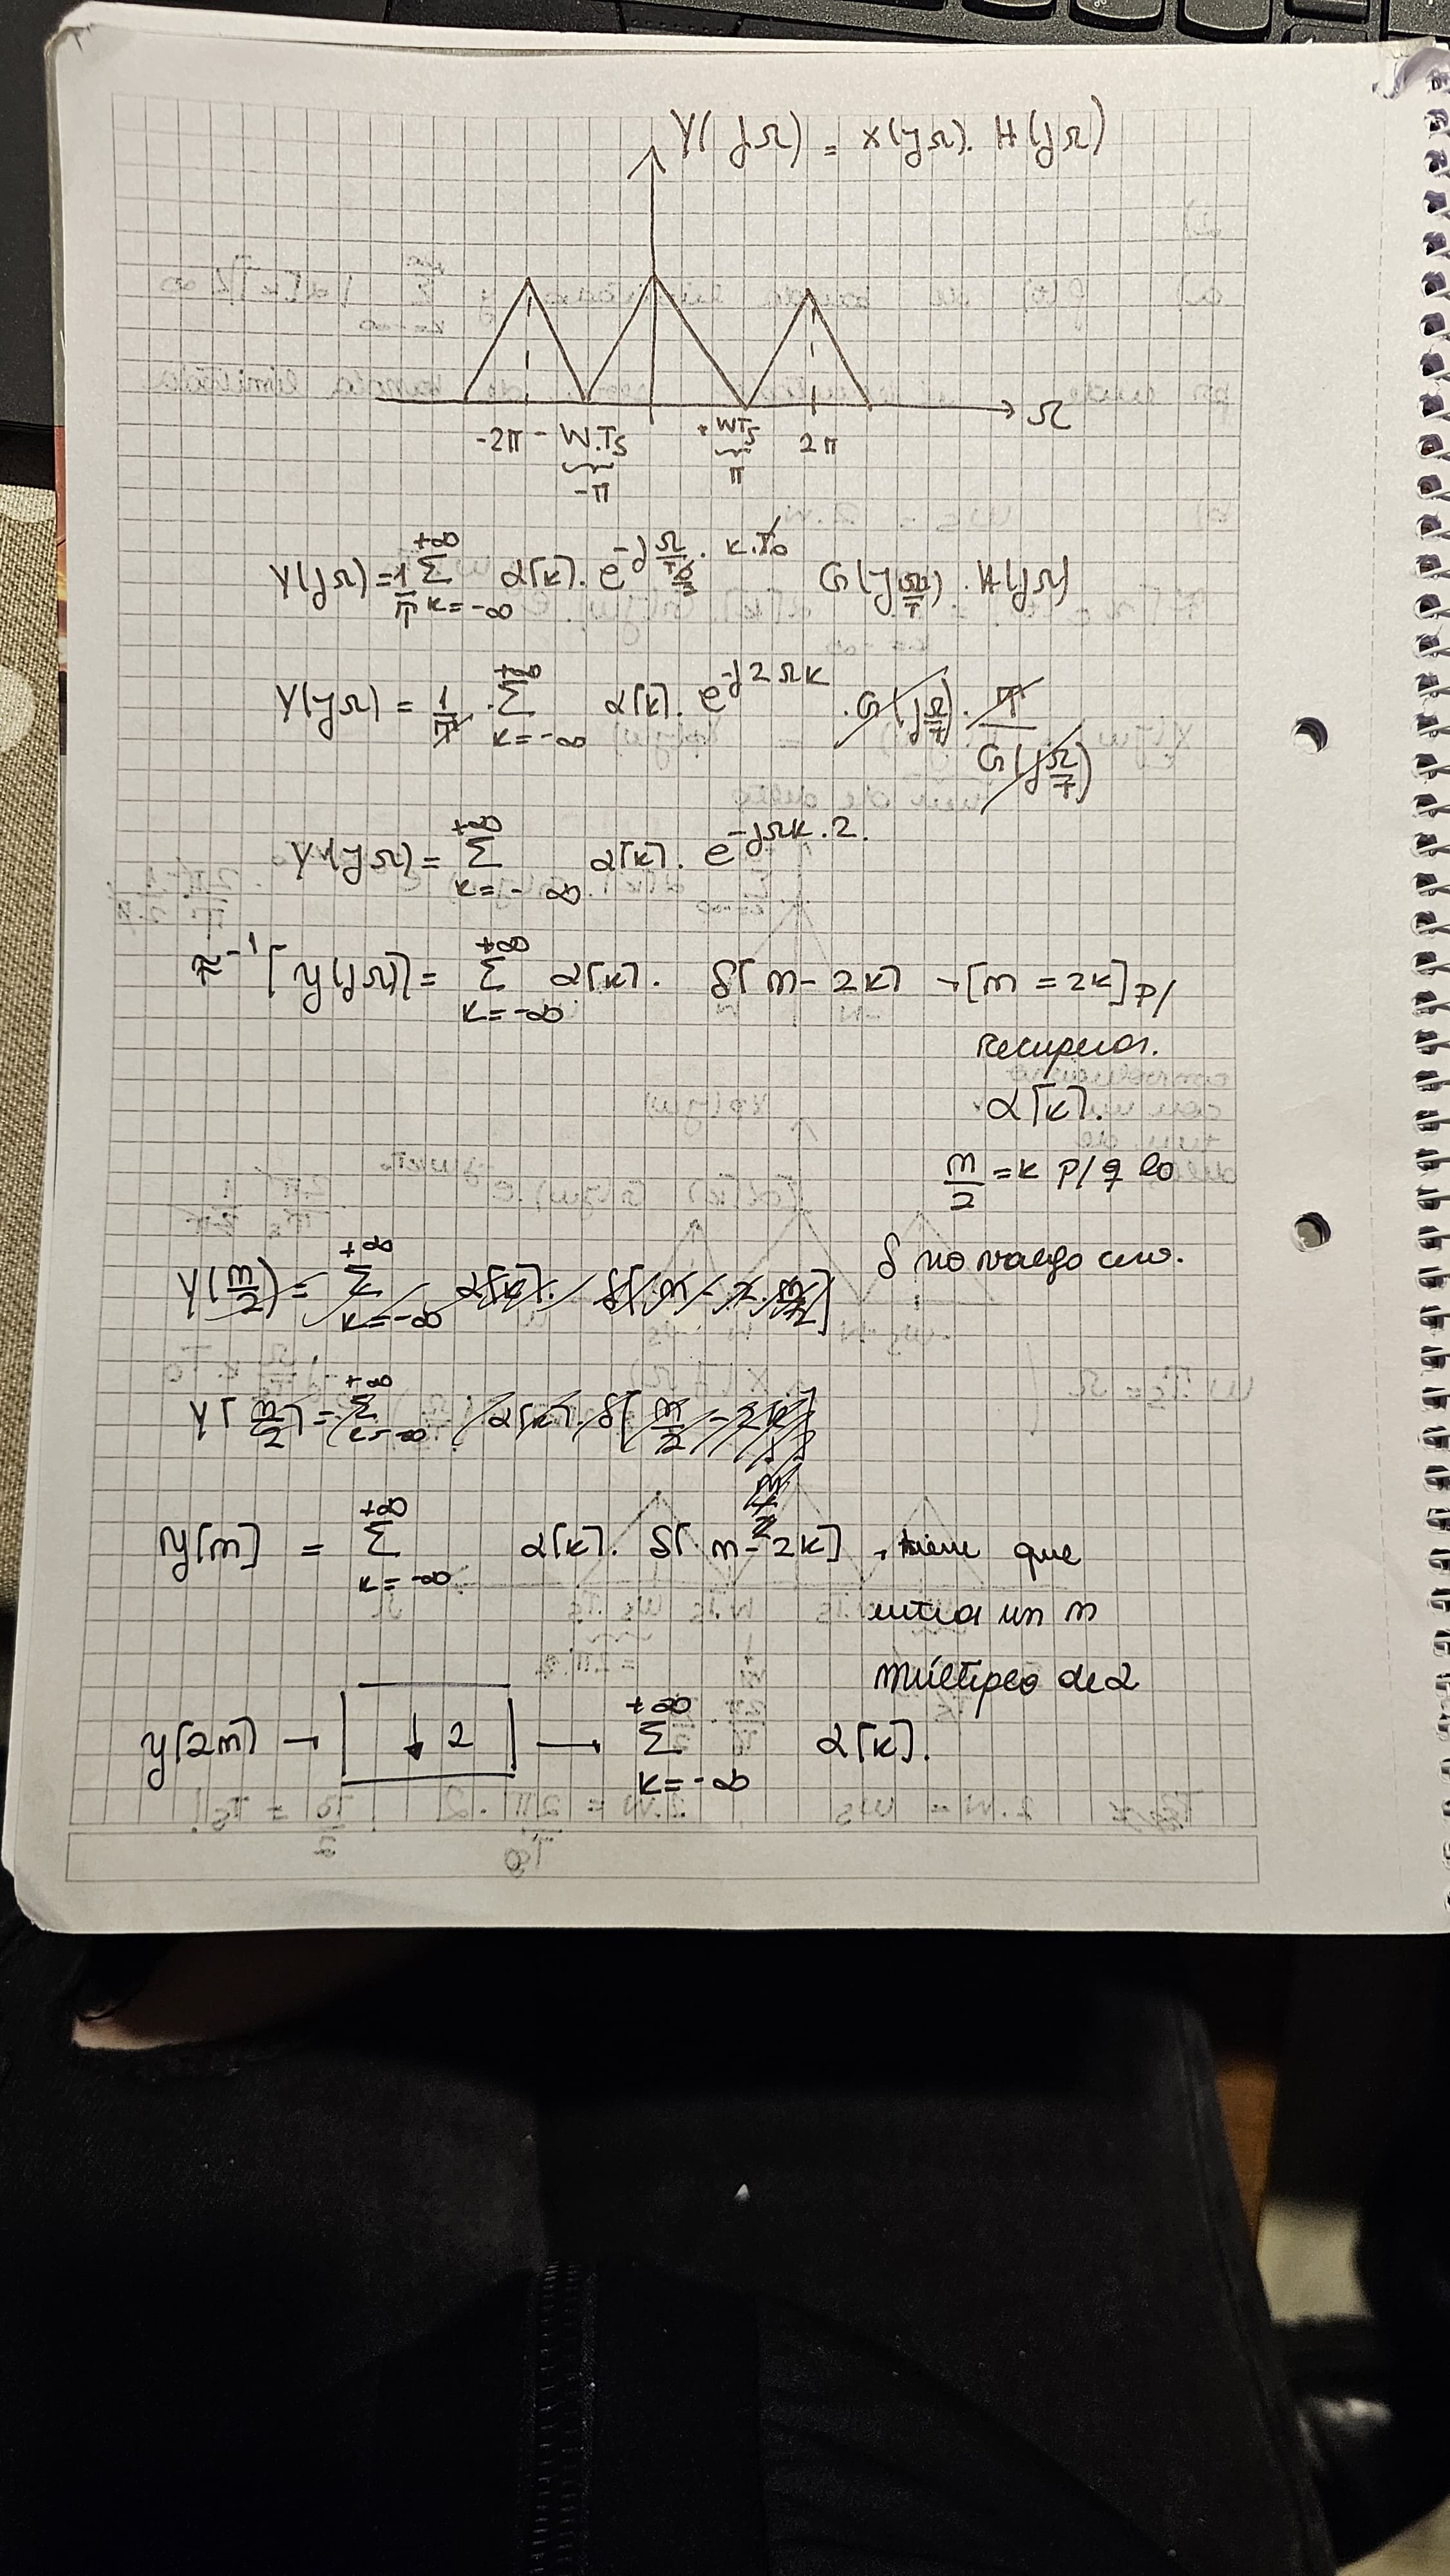 Y(jΩ) = X(jΩ). H(jΩ)
Ω
-2π - W.Ts + WTs 2π
-π π
Y(jΩ) = 1/T Σ_{k=-∞}^{+∞} α[k]. e^{-jΩ/(T0/2). k.T0} G(jΩ/T) . H(jΩ)
Y(jΩ) = 1/T . Σ_{k=-∞}^{+∞} α[k]. e^{-j2Ωk} . G(jΩ/T) . T/G(jΩ/T)
Y(jΩ) = Σ_{k=-∞}^{+∞} α[k]. e^{-jΩk.2.}
F^{-1}[Y(jΩ)] = Σ_{k=-∞}^{+∞} α[k]. δ[n-2k] → [n = 2k] p/
recuperar.
α[k].
n/2 = k p/ q lo
δ no valga cero.
Y(n/2) = Σ_{k=-∞}^{+∞} α[k]. δ[n - 2. n/2]
Y[n/2] = Σ_{k=-∞}^{+∞} α[k]. δ[n/2 - 2k]
n/2
y[n] = Σ_{k=-∞}^{+∞} α[k]. δ[n-2k] → tiene que
entrar un n
múltiplo de 2
y[2n] → ↓ 2 → Σ_{k=-∞}^{+∞} α[k].